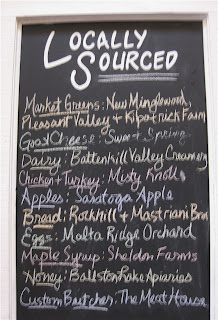 LOCALLY
SOURCED
Market Greens: New Minglewood,
Pleasant Valley + Kilpatrick Farm
Goat Cheese: Sweet Spring
Dairy: Battenkill Valley Creamery
Chicken + Turkey: Misty Knoll
Apples: Saratoga Apple
Bread: Rockhill + Mastrianni Bros
Eggs: Malta Ridge Orchard
Maple Syrup: Sheldon Farms
Honey: Ballston Lake Apiaries
Custom Butcher: The Meat House